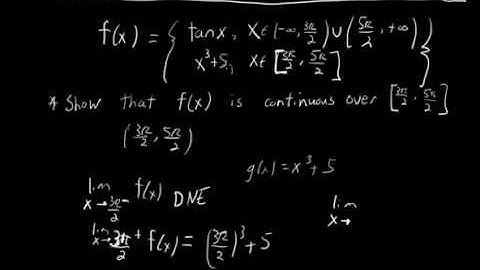 f(x) = { tanx, x∈(-∞, 3π/2)∪(5π/2, +∞)
x³+5, x∈[3π/2, 5π/2] }
* Show that f(x) is continuous over [3π/2, 5π/2]
(3π/2, 5π/2)
g(x) = x³+5
lim x→3π/2 f(x) DNE
lim x→
lim x→3π/2⁺ f(x) = (3π/2)³+5